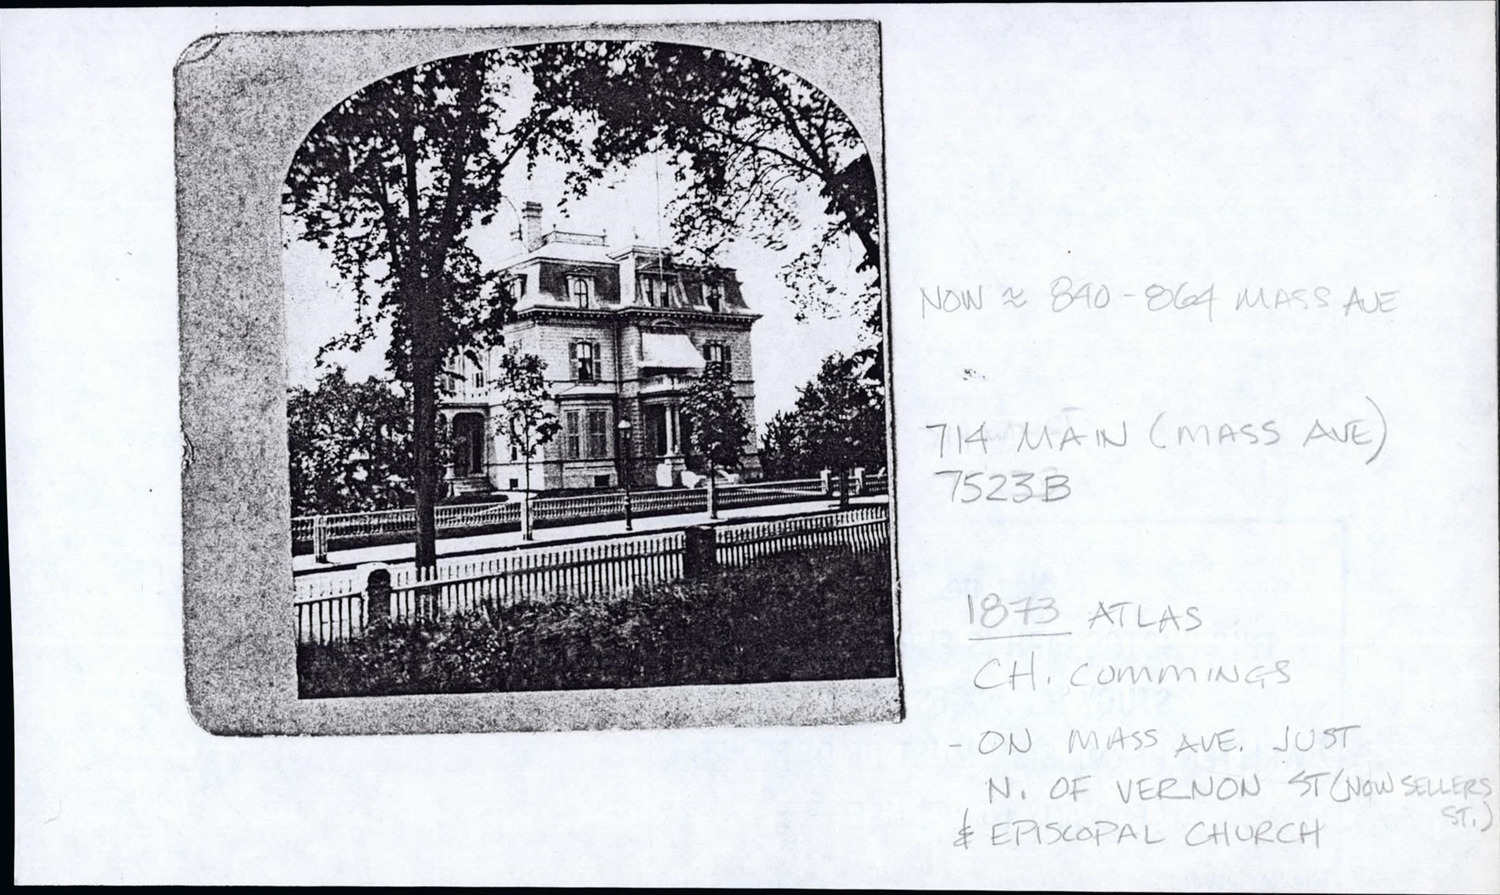 NOW ≈ 840-864 MASS AVE
714 MAIN (MASS AVE)
7523B
1873 ATLAS
CH. CUMMINGS
- ON MASS AVE. JUST
N. OF VERNON ST (NOW SELLERS
ST.)
& EPISCOPAL CHURCH